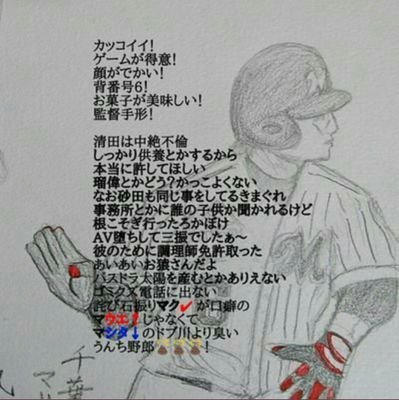 カッコイイ!
ゲームが得意!
顔がでかい!
背番号6!
お菓子が美味しい!
監督手形!
清田は中絶不倫
しっかり供養とかするから
本当に許してほしい
瑠偉とかどう?かっこよくない
なお砂田も同じ事をしてるきまぐれ
事務所とかに誰の子供か聞かれるけど
根こそぎ行ったろかぼけ
AV堕ちして三振でしたぁ〜
彼のために調理師免許取った
あいあいお猿さんだよ
パズドラ太陽を産むとかありえない
ゴミクズ電話に出ない
詫び石振りマク✔が口癖の
マウエ↑じゃなくて
マシタ↓のドブ川より臭い
うんち野郎💩💩💩!
千葉
マ